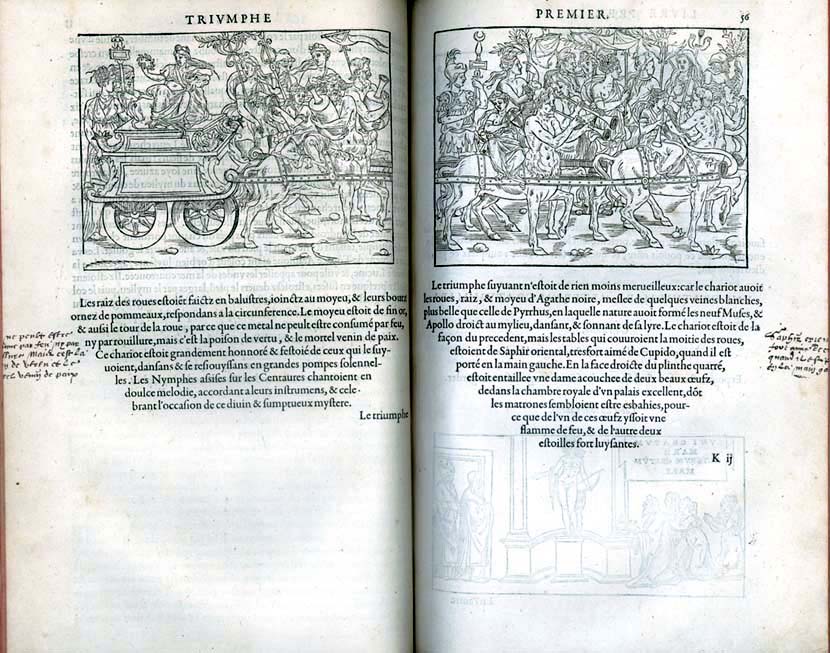 TRIVMPHE
Les raiz des roues estoiẽt faictz en balustres, ioinctz au moyeu, & leurs boutz
ornez de pommeaux, respondans a la circunference. Le moyeu estoit de fin or,
& aussi le tour de la roue, par ce que ce metal ne peult estre consumé par feu,
ny par rouillure, mais c'est la poison de vertu, & le mortel venin de paix.
Ce chariot estoit grandement honnoré & festoié de ceux qui le suy-
uoient, dansans & se resiouyssans en grandes pompes solennel-
les. Les Nymphes assises sur les Centaures chantoient en
doulce melodie, accordant a leurs instrumens, & cele-
brant l'occasion de ce diuin & sumptueux mystere.
Le triumphe
ne peult estre
par feu, ne par
mais cest la
de vertu et le
venin de paix
PREMIER. 56
Le triumphe suyuant n'estoit de rien moins merueilleux: car le chariot auoit
les roues, raiz, & moyeu d'Agathe noire, meslee de quelques veines blanches,
plus belle que celle de Pyrrhus, en laquelle nature auoit formé les neuf Muses, &
Apollo droict au mylieu, dansant, & sonnant de sa lyre. Le chariot estoit de la
façon du precedent, mais les tables qui couuroient la moitie des roues,
estoient de Saphir oriental, tresfort aimé de Cupido, quand il est
porté en la main gauche. En la face droicte du plinthe quarré,
estoit entaillee vne dame acouchee de deux beaux œufz,
dedans la chambre royale d'vn palais excellent, dõt
les matrones sembloient estre esbahies, pour-
ce que de l'vn de ces œufz yssoit vne
flamme de feu, & de l'autre deux
estoilles fort luysantes.
K ij